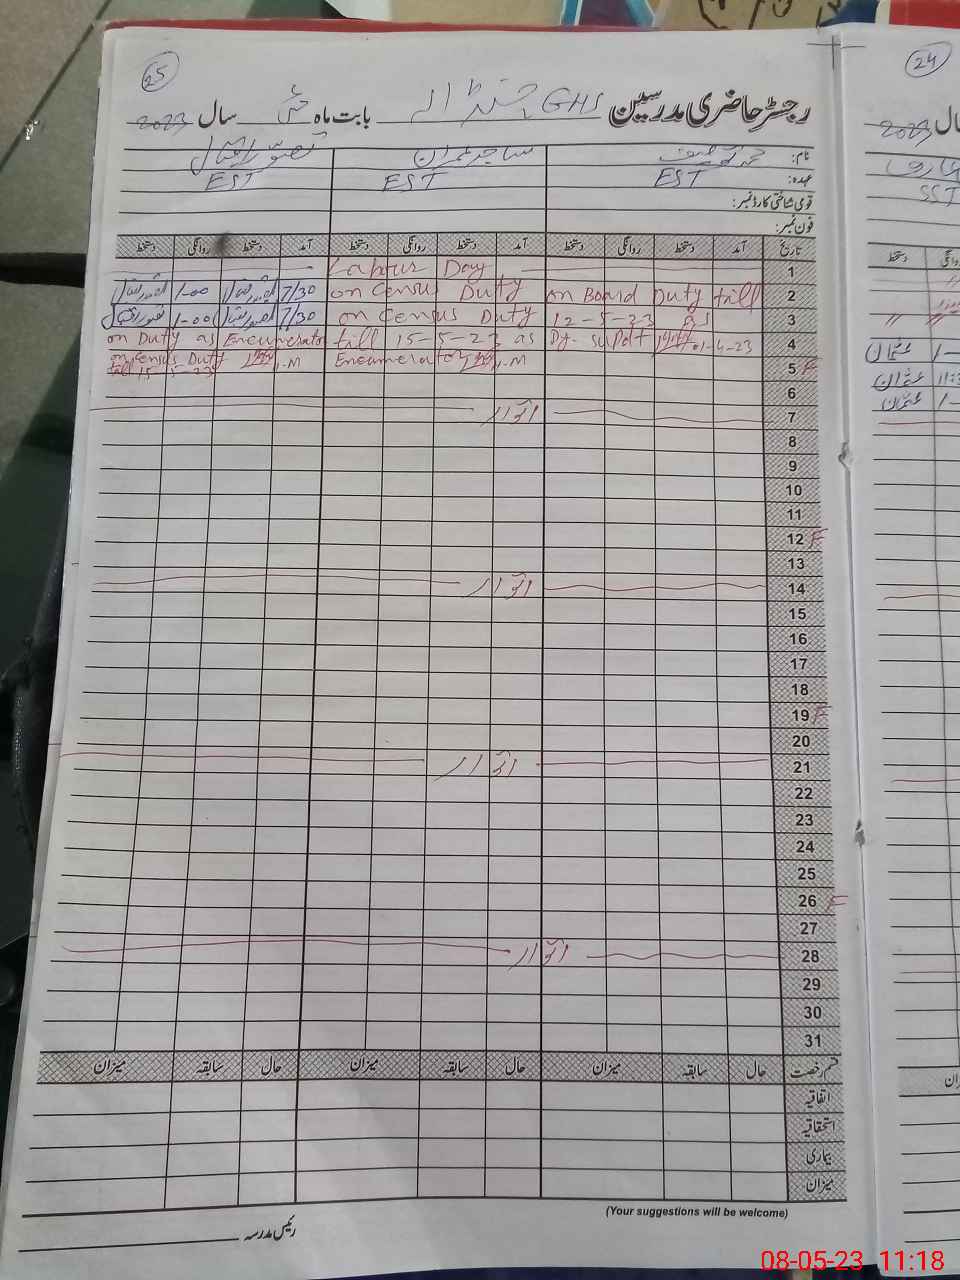 25
رجسٹر حاضری مدرسین GHS بابت ماہ مئی سال 2023
نام: محمد توصیف ساجد عمران تصور اقبال
عہدہ: EST EST EST
قومی شناختی کارڈ نمبر:
فون نمبر:
تاریخ آمد دستخط روانگی دستخط آمد دستخط روانگی دستخط آمد دستخط روانگی دستخط
1 Labour Day
2 on Board Duty till on Census Duty 7/30 تصور اقبال 1-00 تصور اقبال
3 12-5-23 as on Census Duty 7/30 تصور اقبال 1-00 تصور اقبال
4 Dy. Supdt 01-4-23 till 15-5-23 as on Duty as Eneumerator
5 F Eneumerator H.M on Census Duty H.M
till 15-5-23
6
7 اتوار
8
9
10
11
12 F
13
14 اتوار
15
16
17
18
19 F
20
21 اتوار
22
23
24
25
26 F
27
28 اتوار
29
30
31
قسم رخصت حال سابقہ میزان حال سابقہ میزان حال سابقہ میزان
اتفاقیہ
استحقاقیہ
بیماری
میزان
(Your suggestions will be welcome)
رئیس مدرسہ
24
سال 2023
SST
دستخط
عثمان 1-
عثمان 11:3
عثمان 1-
08-05-23 11:18